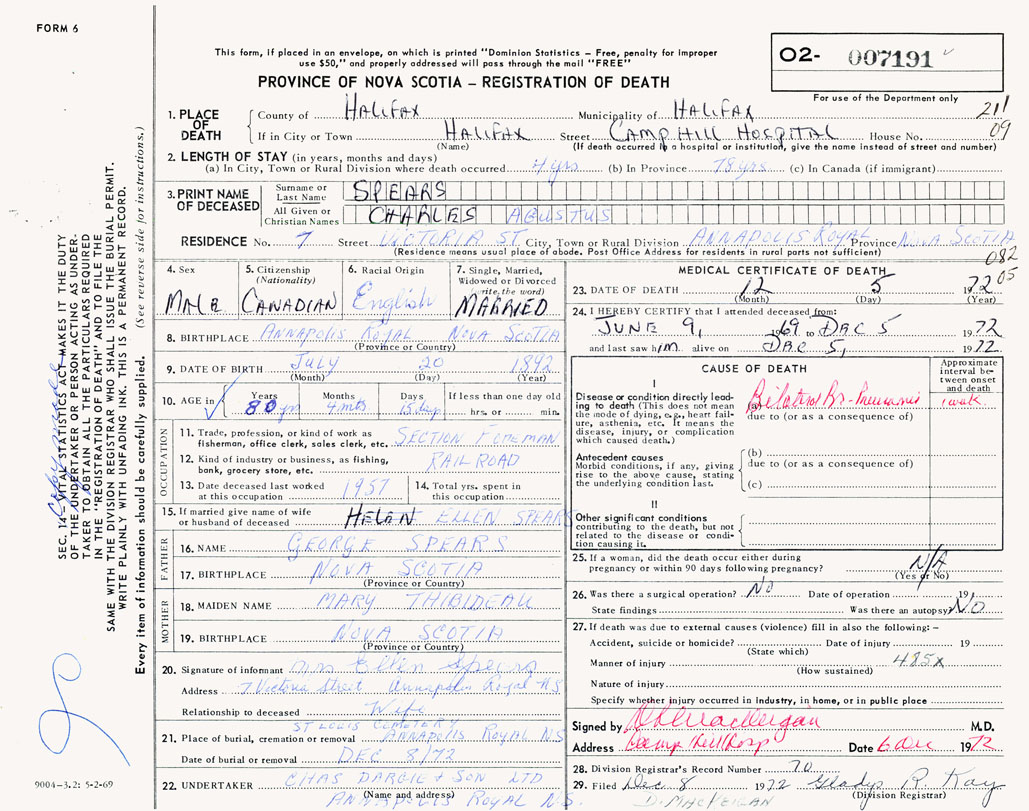 FORM 6
This form, if placed in an envelope, on which is printed "Dominion Statistics – Free, penalty for improper
use $50," and properly addressed will pass through the mail "FREE"
PROVINCE OF NOVA SCOTIA – REGISTRATION OF DEATH
02- 007191
For use of the Department only
211
09
1. PLACE OF DEATH
County of HALIFAX Municipality of HALIFAX
If in City or Town HALIFAX Street CAMP HILL HOSPITAL House No.
(Name) (If death occurred in a hospital or institution, give the name instead of street and number)
2. LENGTH OF STAY (in years, months and days)
(a) In City, Town or Rural Division where death occurred 4 yrs (b) In Province 78 yrs. (c) In Canada (if immigrant)
3. PRINT NAME OF DECEASED
Surname or Last Name SPEARS
All Given or Christian Names CHARLES AGUSTUS
RESIDENCE No. 7 Street VICTORIA ST. City, Town or Rural Division ANNAPOLIS ROYAL Province NOVA SCOTIA
(Residence means usual place of abode. Post Office Address for residents in rural parts not sufficient)
082
05
4. Sex MALE
5. Citizenship (Nationality) CANADIAN
6. Racial Origin English
7. Single, Married, Widowed or Divorced (write, the word) MARRIED
8. BIRTHPLACE ANNAPOLIS ROYAL NOVA SCOTIA
(Province or Country)
9. DATE OF BIRTH July 20 1892
(Month) (Day) (Year)
10. AGE in Years Months Days If less than one day old
80 yr 4 mts 15 days hrs. or min.
OCCUPATION
11. Trade, profession, or kind of work as fisherman, office clerk, sales clerk, etc. SECTION FOREMAN
12. Kind of industry or business, as fishing, bank, grocery store, etc. RAIL ROAD
13. Date deceased last worked at this occupation 1957
14. Total yrs. spent in this occupation
15. If married give name of wife or husband of deceased HELEN ELLEN SPEARS
FATHER
16. NAME GEORGE SPEARS
17. BIRTHPLACE NOVA SCOTIA
(Province or Country)
MOTHER
18. MAIDEN NAME MARY THIBIDEAU
19. BIRTHPLACE NOVA SCOTIA
(Province or Country)
20. Signature of informant Mrs Ellen Spears
Address 7 Victoria Street Annapolis Royal NS
Relationship to deceased Wife
ST LOUIS CEMETERY
21. Place of burial, cremation or removal ANNAPOLIS ROYAL NS
Date of burial or removal DEC 8/72
22. UNDERTAKER CHAS DARGIE + SON LTD
(Name and address)
ANNAPOLIS ROYAL N.S.
MEDICAL CERTIFICATE OF DEATH
23. DATE OF DEATH 12 5 1972
(Month) (Day) (Year)
24. I HEREBY CERTIFY that I attended deceased from:
JUNE 9, 1969 to DEC 5 1972
and last saw him alive on DEC 5, 1972
CAUSE OF DEATH
Approximate interval between onset and death
I
Disease or condition directly leading to death (This does not mean the mode of dying, e.g., heart failure, asthenia, etc. It means the disease, injury, or complication which caused death.)
(a) Bilateral Br-Pneumonia 1 week
due to (or as a consequence of)
Antecedent causes
Morbid conditions, if any, giving rise to the above cause, stating the underlying condition last.
(b)
due to (or as a consequence of)
(c)
II
Other significant conditions
contributing to the death, but not related to the disease or condition causing it.
25. If a woman, did the death occur either during pregnancy or within 90 days following pregnancy? N/A
(Yes or No)
26. Was there a surgical operation? NO Date of operation 19
State findings Was there an autopsy NO
27. If death was due to external causes (violence) fill in also the following: –
Accident, suicide or homicide? Date of injury 19
(State which)
Manner of injury 485X
(How sustained)
Nature of injury
Specify whether injury occurred in industry, in home, or in public place
Signed by M.D.
Address Camp Hill Hosp Date 6 Dec 1972
28. Division Registrar's Record Number 70
29. Filed Dec 8 1972 Gladys R. Kay
(Division Registrar)
D. MACKEIGAN
SEC. 14 – VITAL STATISTICS ACT MAKES IT THE DUTY
OF THE UNDERTAKER OR PERSON ACTING AS UNDER-
TAKER TO OBTAIN ALL THE PARTICULARS REQUIRED
IN THE "REGISTRATION OF DEATH" AND TO FILE THE
SAME WITH THE DIVISION REGISTRAR WHO SHALL ISSUE THE BURIAL PERMIT.
WRITE PLAINLY WITH UNFADING INK. THIS IS A PERMANENT RECORD.
Every item of information should be carefully supplied. (See reverse side for instructions.)
9004-3.2: 5-2-69